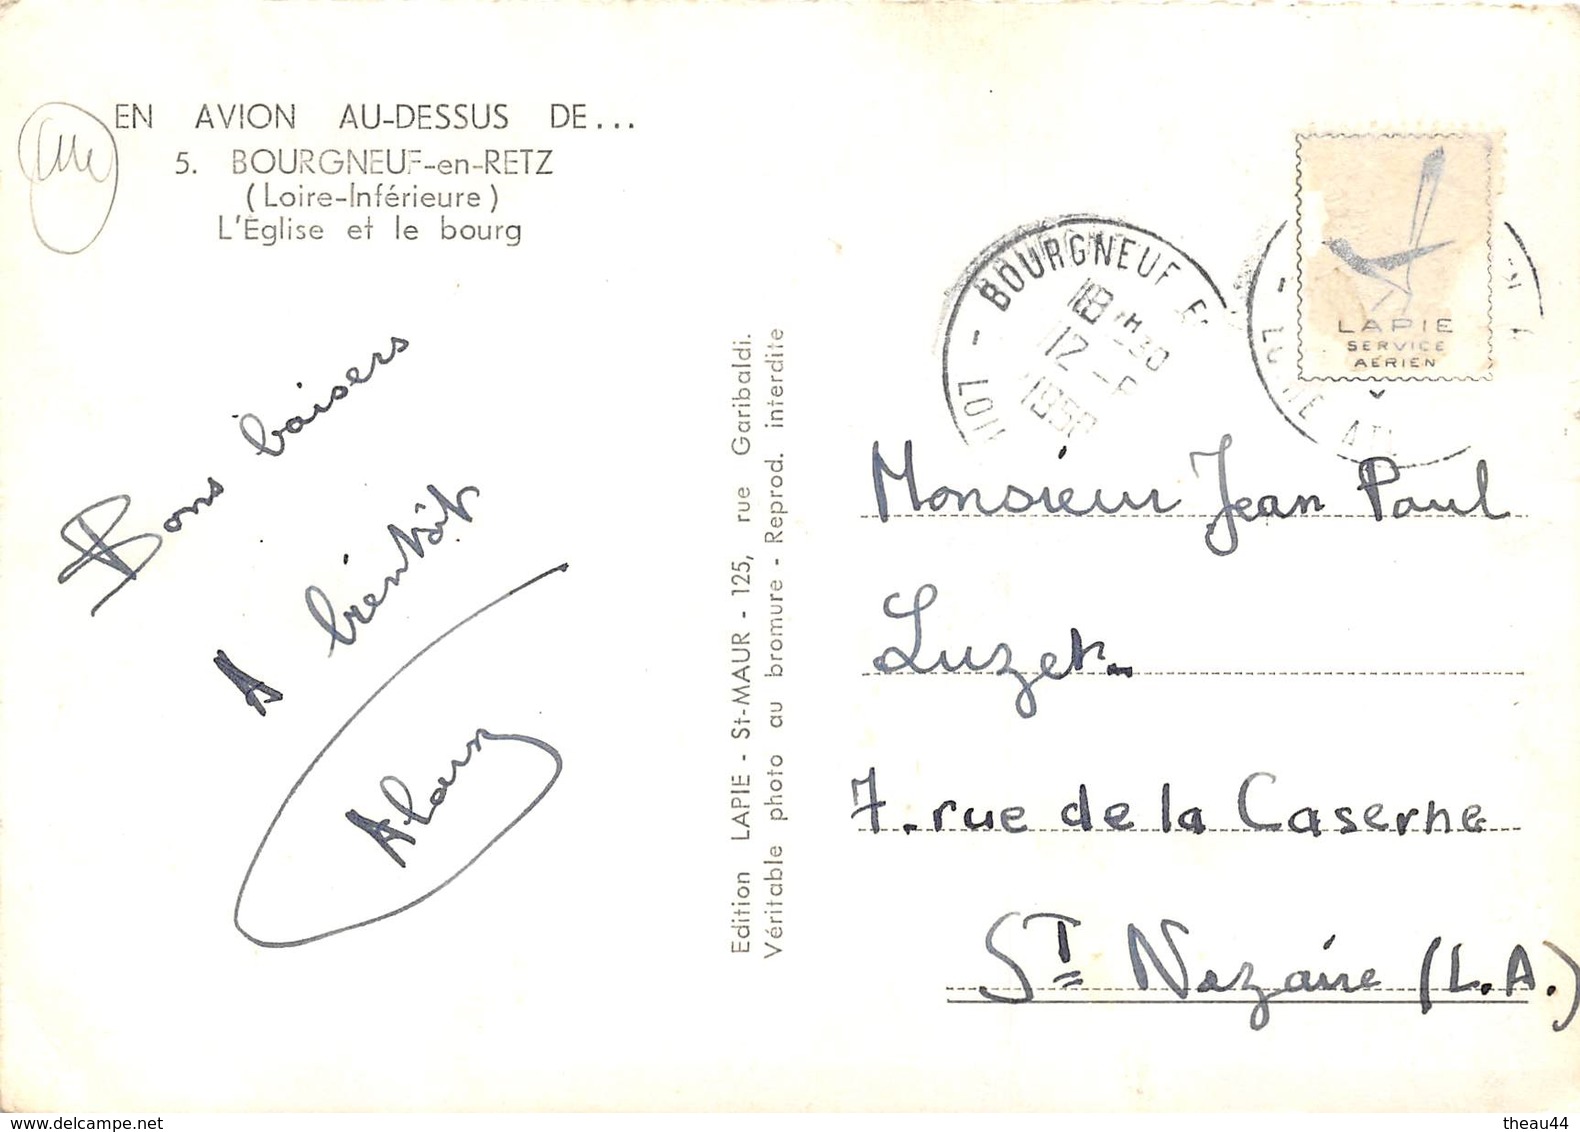 EN AVION AU-DESSUS DE...
5. BOURGNEUF-en-RETZ
(Loire-Inférieure)
L'Église et le bourg
Bons baisers
A bientôt
Alain
Edition LAPIE - St-MAUR - 125, rue Garibaldi.
Véritable photo au bromure - Reprod. interdite
- BOURGNEUF
18H30
12 -
LAPIE
SERVICE
AÉRIEN
Monsieur Jean Paul
Luzet
7. rue de la Caserne
St Nazaire (L.A.)
delcampe.net
theau44